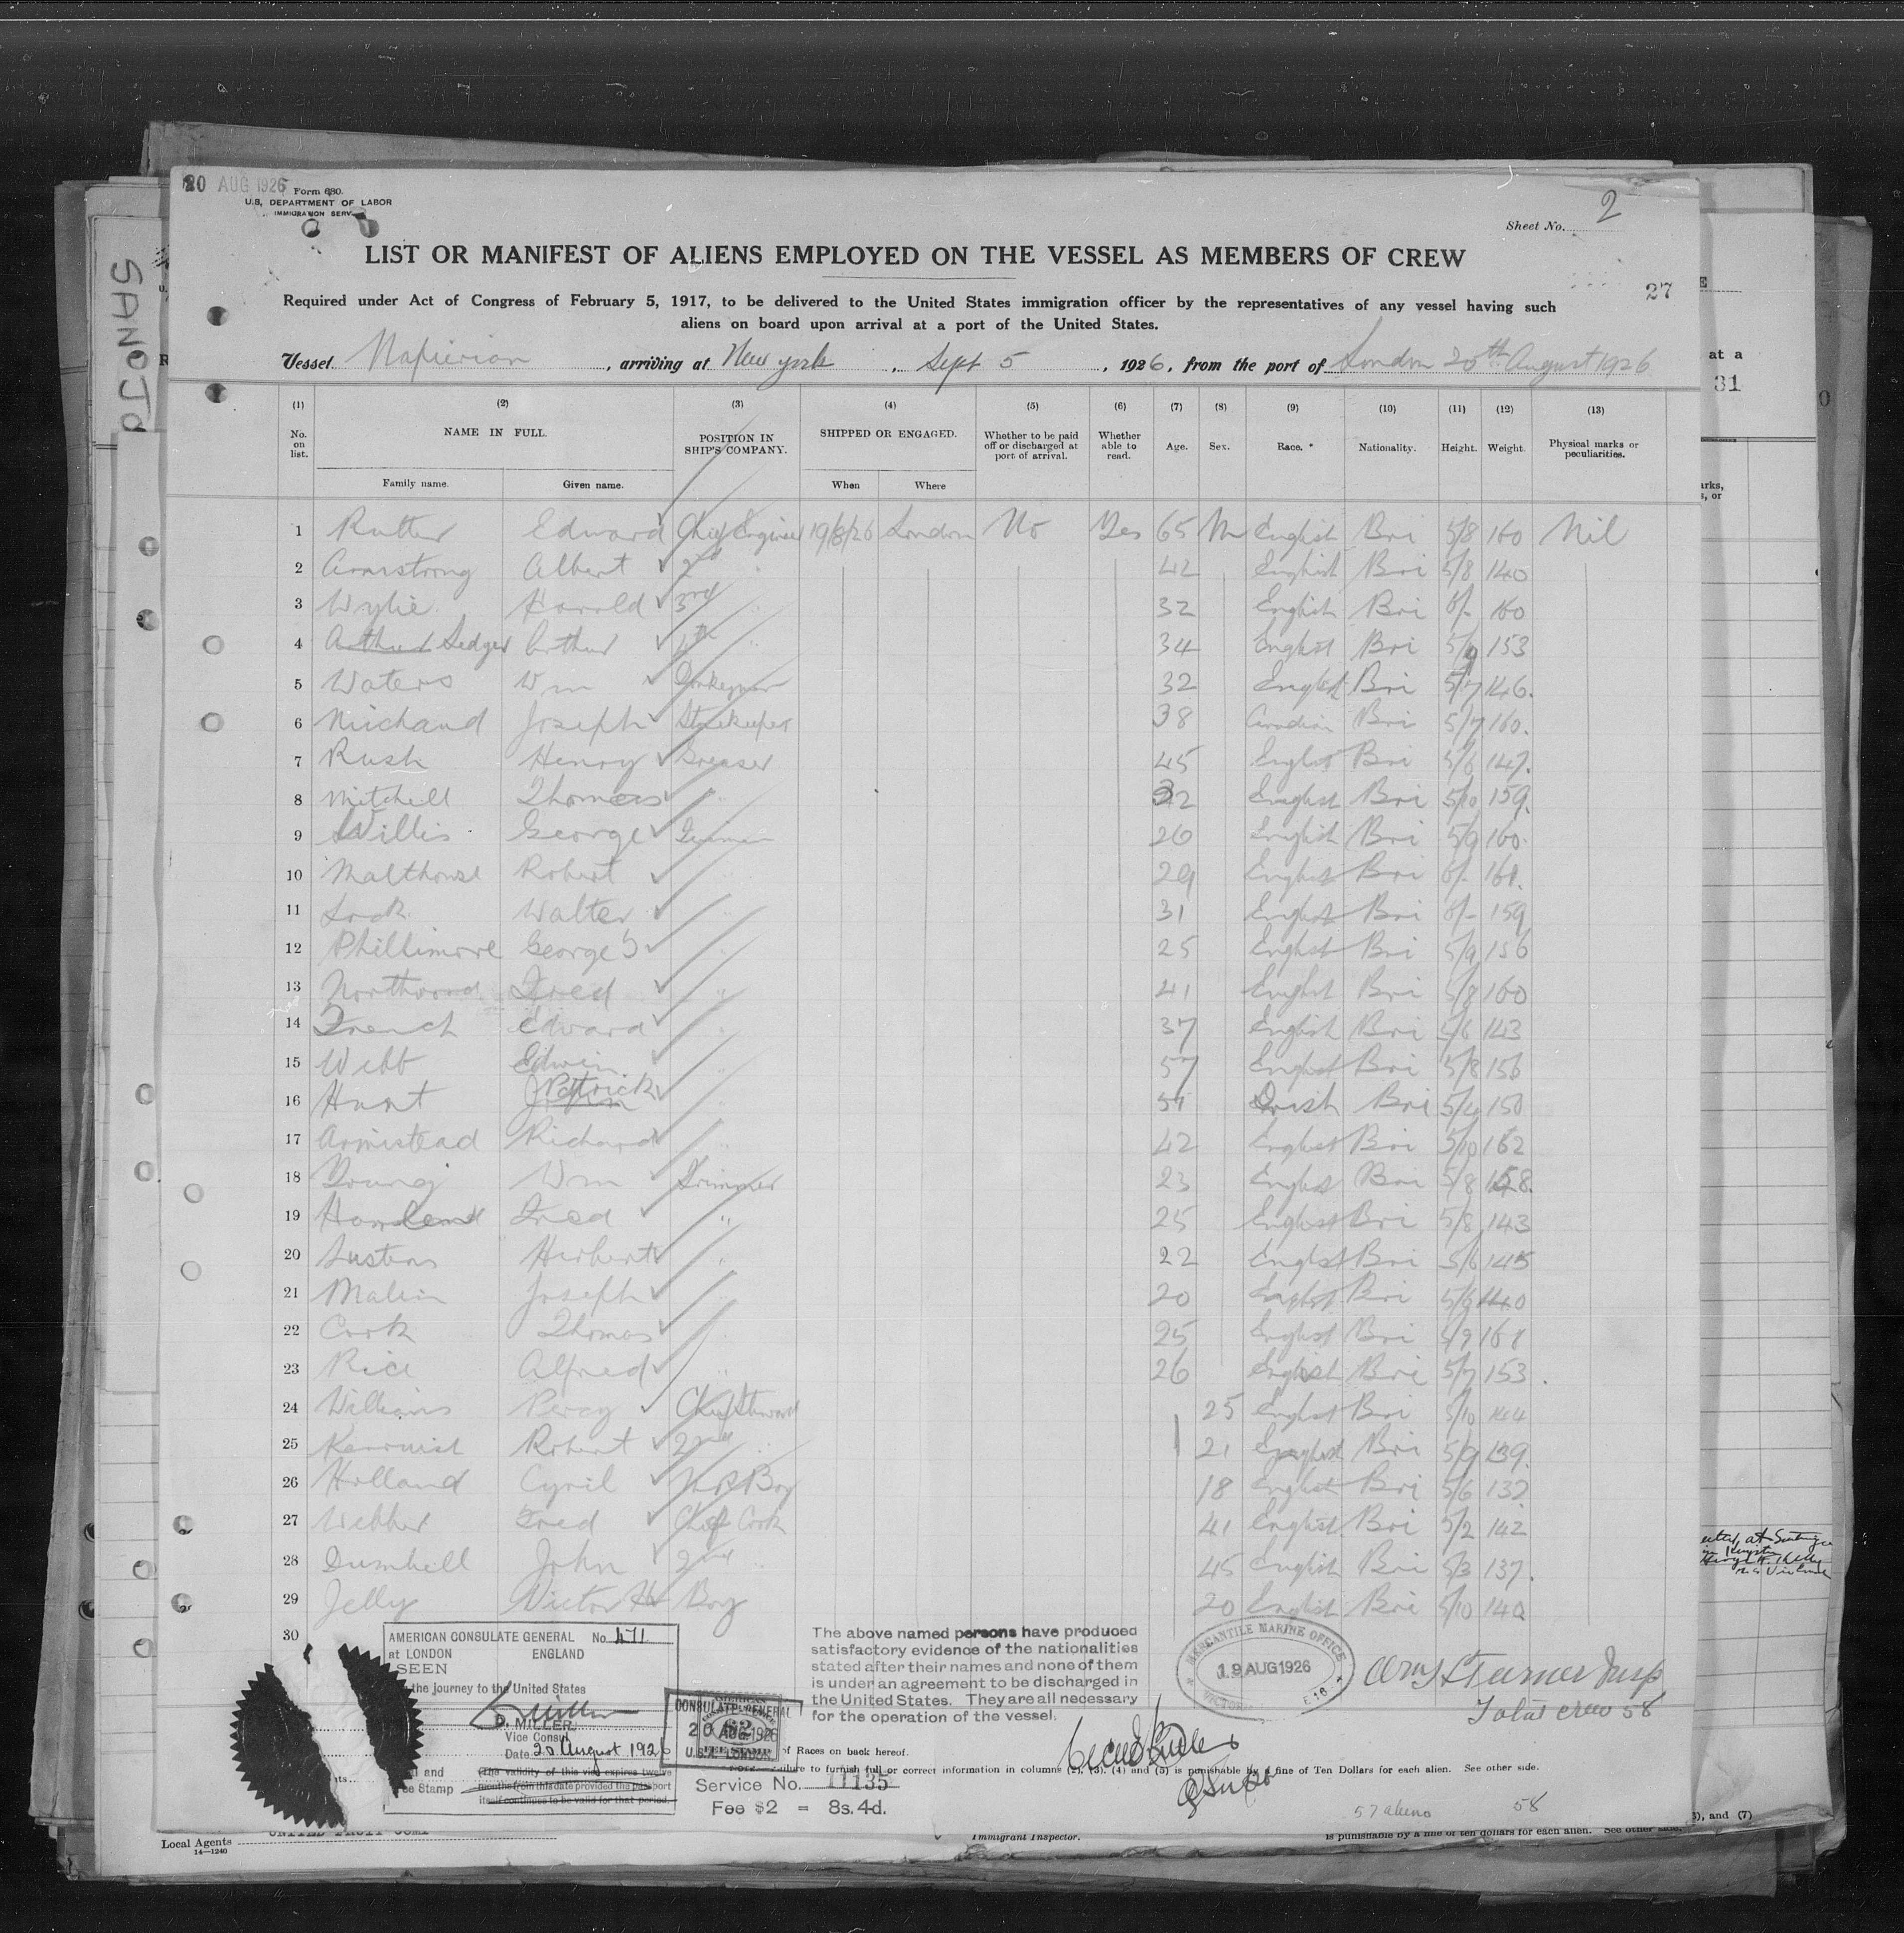 20 AUG 1926
Form 680.
U.S. DEPARTMENT OF LABOR
IMMIGRATION SERV
Sheet No. 2
LIST OR MANIFEST OF ALIENS EMPLOYED ON THE VESSEL AS MEMBERS OF CREW
27
Required under Act of Congress of February 5, 1917, to be delivered to the United States immigration officer by the representatives of any vessel having such
aliens on board upon arrival at a port of the United States.
Vessel Napierian, arriving at New York, Sept 5, 1926, from the port of London 20th August 1926
(1) (2) (3) (4) (5) (6) (7) (8) (9) (10) (11) (12) (13)
No. on list. NAME IN FULL. POSITION IN SHIP'S COMPANY. SHIPPED OR ENGAGED. Whether to be paid off or discharged at port of arrival. Whether able to read. Age. Sex. Race.* Nationality. Height. Weight. Physical marks or peculiarities.
Family name. Given name. When Where
1 Rutter Edward Chief Engineer 19/8/26 London No Yes 65 M English Bri 5/8 160 Nil
2 Armstrong Albert 2nd " 42 English Bri 5/8 140
3 Wylie Harold 3rd " 32 English Bri 6/- 160
4 Arthur Ledger Arthur 4th " 34 English Bri 5/9 153
5 Waters Wm Donkeyman 32 English Bri 5/7 146.
6 Joseph Storekeeper 38 Canadian Bri 5/7 160.
7 Rush Henry Greaser 45 English Bri 5/6 147.
8 Mitchell Thomas " 32 English Bri 5/10 159.
9 Willis George Fireman 26 English Bri 5/9 160.
10 Malthouse Robert " 29 English Bri 6/- 161.
11 Lock Walter " 31 English Bri 6/- 159
12 Phillimore George " 25 English Bri 5/9 156
13 Northwood Fred " 41 English Bri 5/8 160
14 French Edward " 37 English Bri 5/6 143
15 Webb Edwin " 57 English Bri 5/8 156
16 Hunt Patrick " 51 Irish Bri 5/4 150
17 Armistead Richard " 42 English Bri 5/10 162
18 Young Wm Trimmer 23 English Bri 5/8 158.
19 Fred " 25 English Bri 5/8 143
20 Herbert " 22 English Bri 5/6 145
21 Malin Joseph " 20 English Bri 5/6 140
22 Cook Thomas " 25 English Bri 5/9 161
23 Rice Alfred " 26 English Bri 5/7 153.
24 Williams Percy Chief Steward 25 English Bri 5/10 144
25 Robert 2nd " 21 English Bri 5/9 139.
26 Holland Cyril Mess Boy 18 English Bri 5/6 132
27 Webber Fred Chief Cook 41 English Bri 5/2 142
28 Dumbell John 2nd " 45 English Bri 5/3 137.
29 Jelly Victor H Boy 20 English Bri 5/10 140
30
AMERICAN CONSULATE GENERAL No. 471
at LONDON ENGLAND
SEEN
the journey to the United States
D. MILLER.
Vice Consul
Date 20 August 1926
(The validity of this visa expires twelve
months from this date provided the passport
itself continues to be valid for that period.
CONSULATE GENERAL
20 AUG 1926
U.S.A. LONDON.
Service No. 11135
Fee $2 = 8s. 4d.
The above named persons have produced
satisfactory evidence of the nationalities
stated after their names and none of them
is under an agreement to be discharged in
the United States. They are all necessary
for the operation of the vessel.
MERCANTILE MARINE OFFICE
19 AUG 1926
Total crew 58
of Races on back hereof.
failure to furnish full or correct information in columns (2), (3), (4) and (5) is punishable by a fine of Ten Dollars for each alien. See other side.
57 aliens 58
Local Agents
14—1240
Immigrant Inspector.
is punishable by a fine of ten dollars for each alien. See other side.
and (7)
SANOJO
at a
31